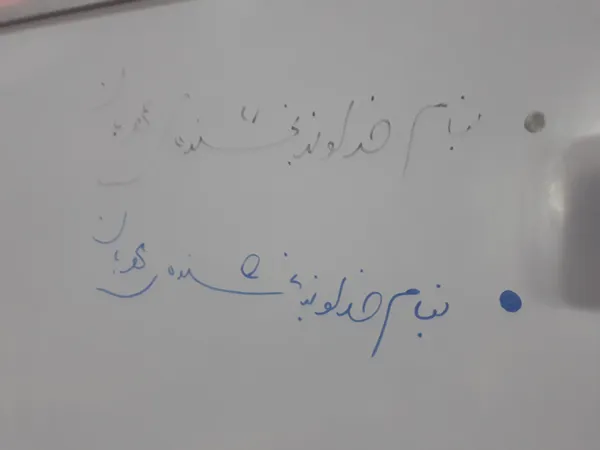 بنام خداوند بخشنده مهربان
بنام خداوند بخشنده مهربان